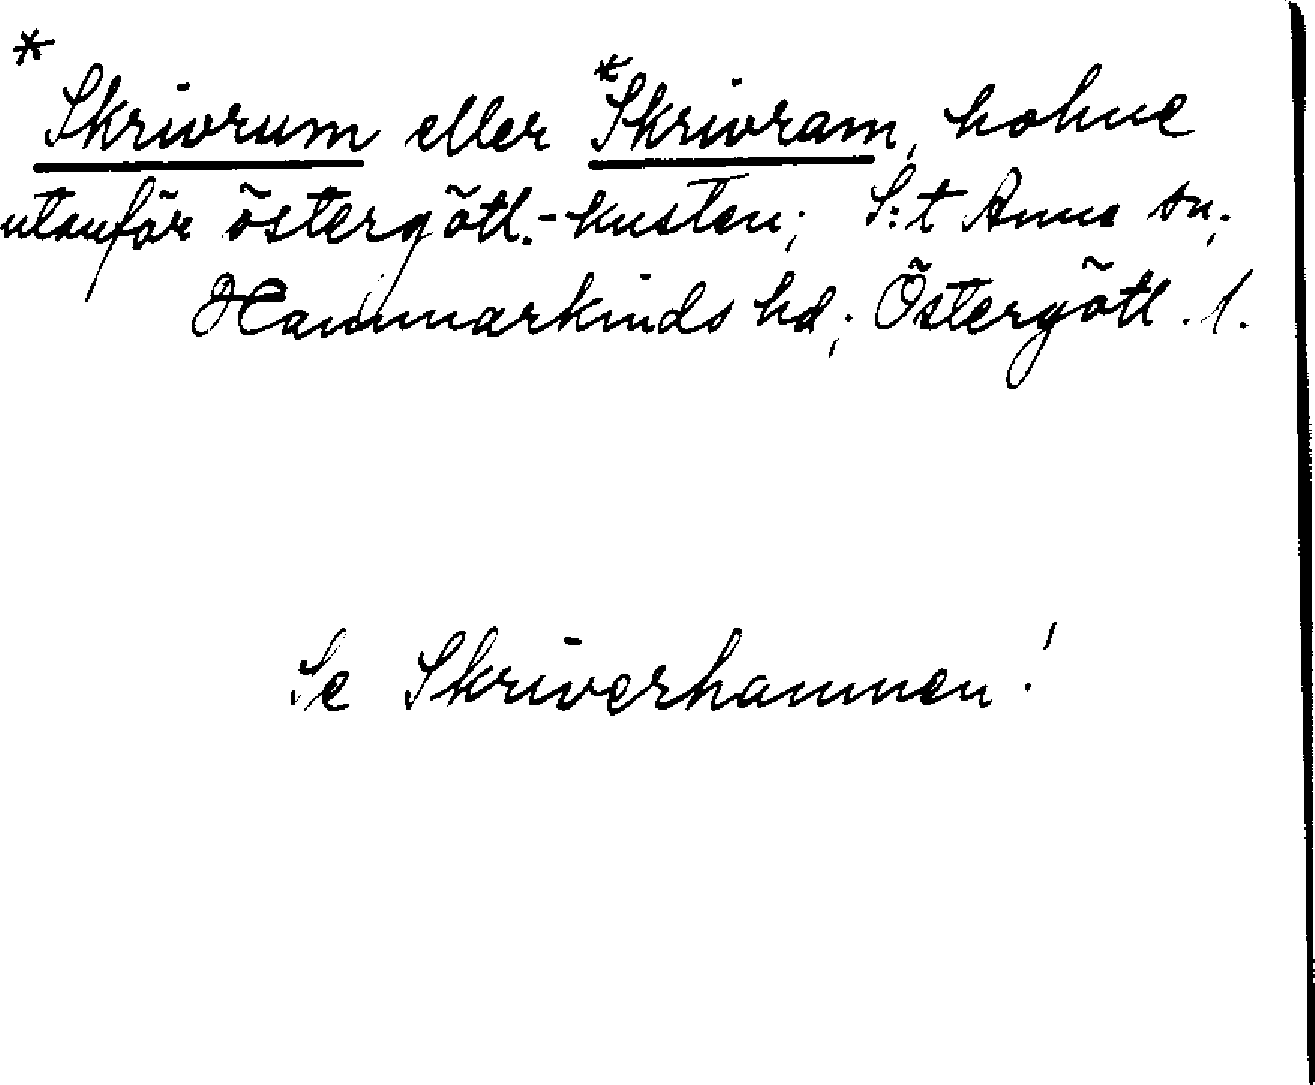 *Skrivrum eller *Skrivram, holme
utanför östergötl.-kusten; S:t Anna sn.;
Hammarkinds hd.; Östergötl. l.
Se Skriverhamnen!